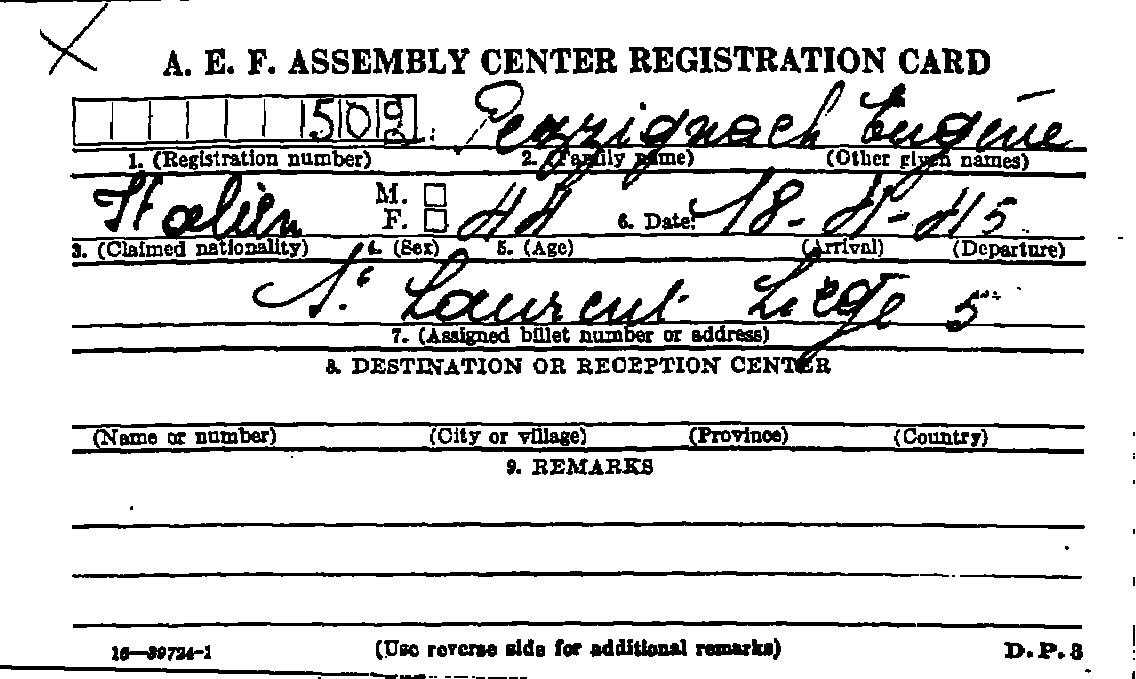 A. E. F. ASSEMBLY CENTER REGISTRATION CARD
509 Pezzignach Eugéne
1. (Registration number) 2. (Family name) (Other given names)
Italien M. ☐ F. ☐ 44 6. Date: 18-4-45
3. (Claimed nationality) 4. (Sex) 5. (Age) (Arrival) (Departure)
St Laurent Liège 5
7. (Assigned billet number or address)
8. DESTINATION OR RECEPTION CENTER
(Name or number) (City or village) (Province) (Country)
9. REMARKS
16—39724-1 (Use reverse side for additional remarks) D.P.3